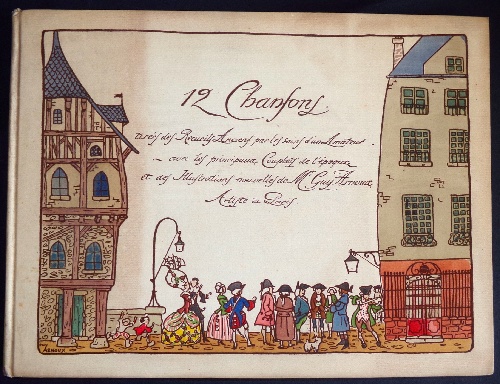 12 Chansons
tirées des Recueils Anciens par les soins d'un Amateur
avec les principaux Couplets de l'époque
et des Illustrations nouvelles de Mr. Guy Arnoux,
Artiste à Paris
ARNOUX